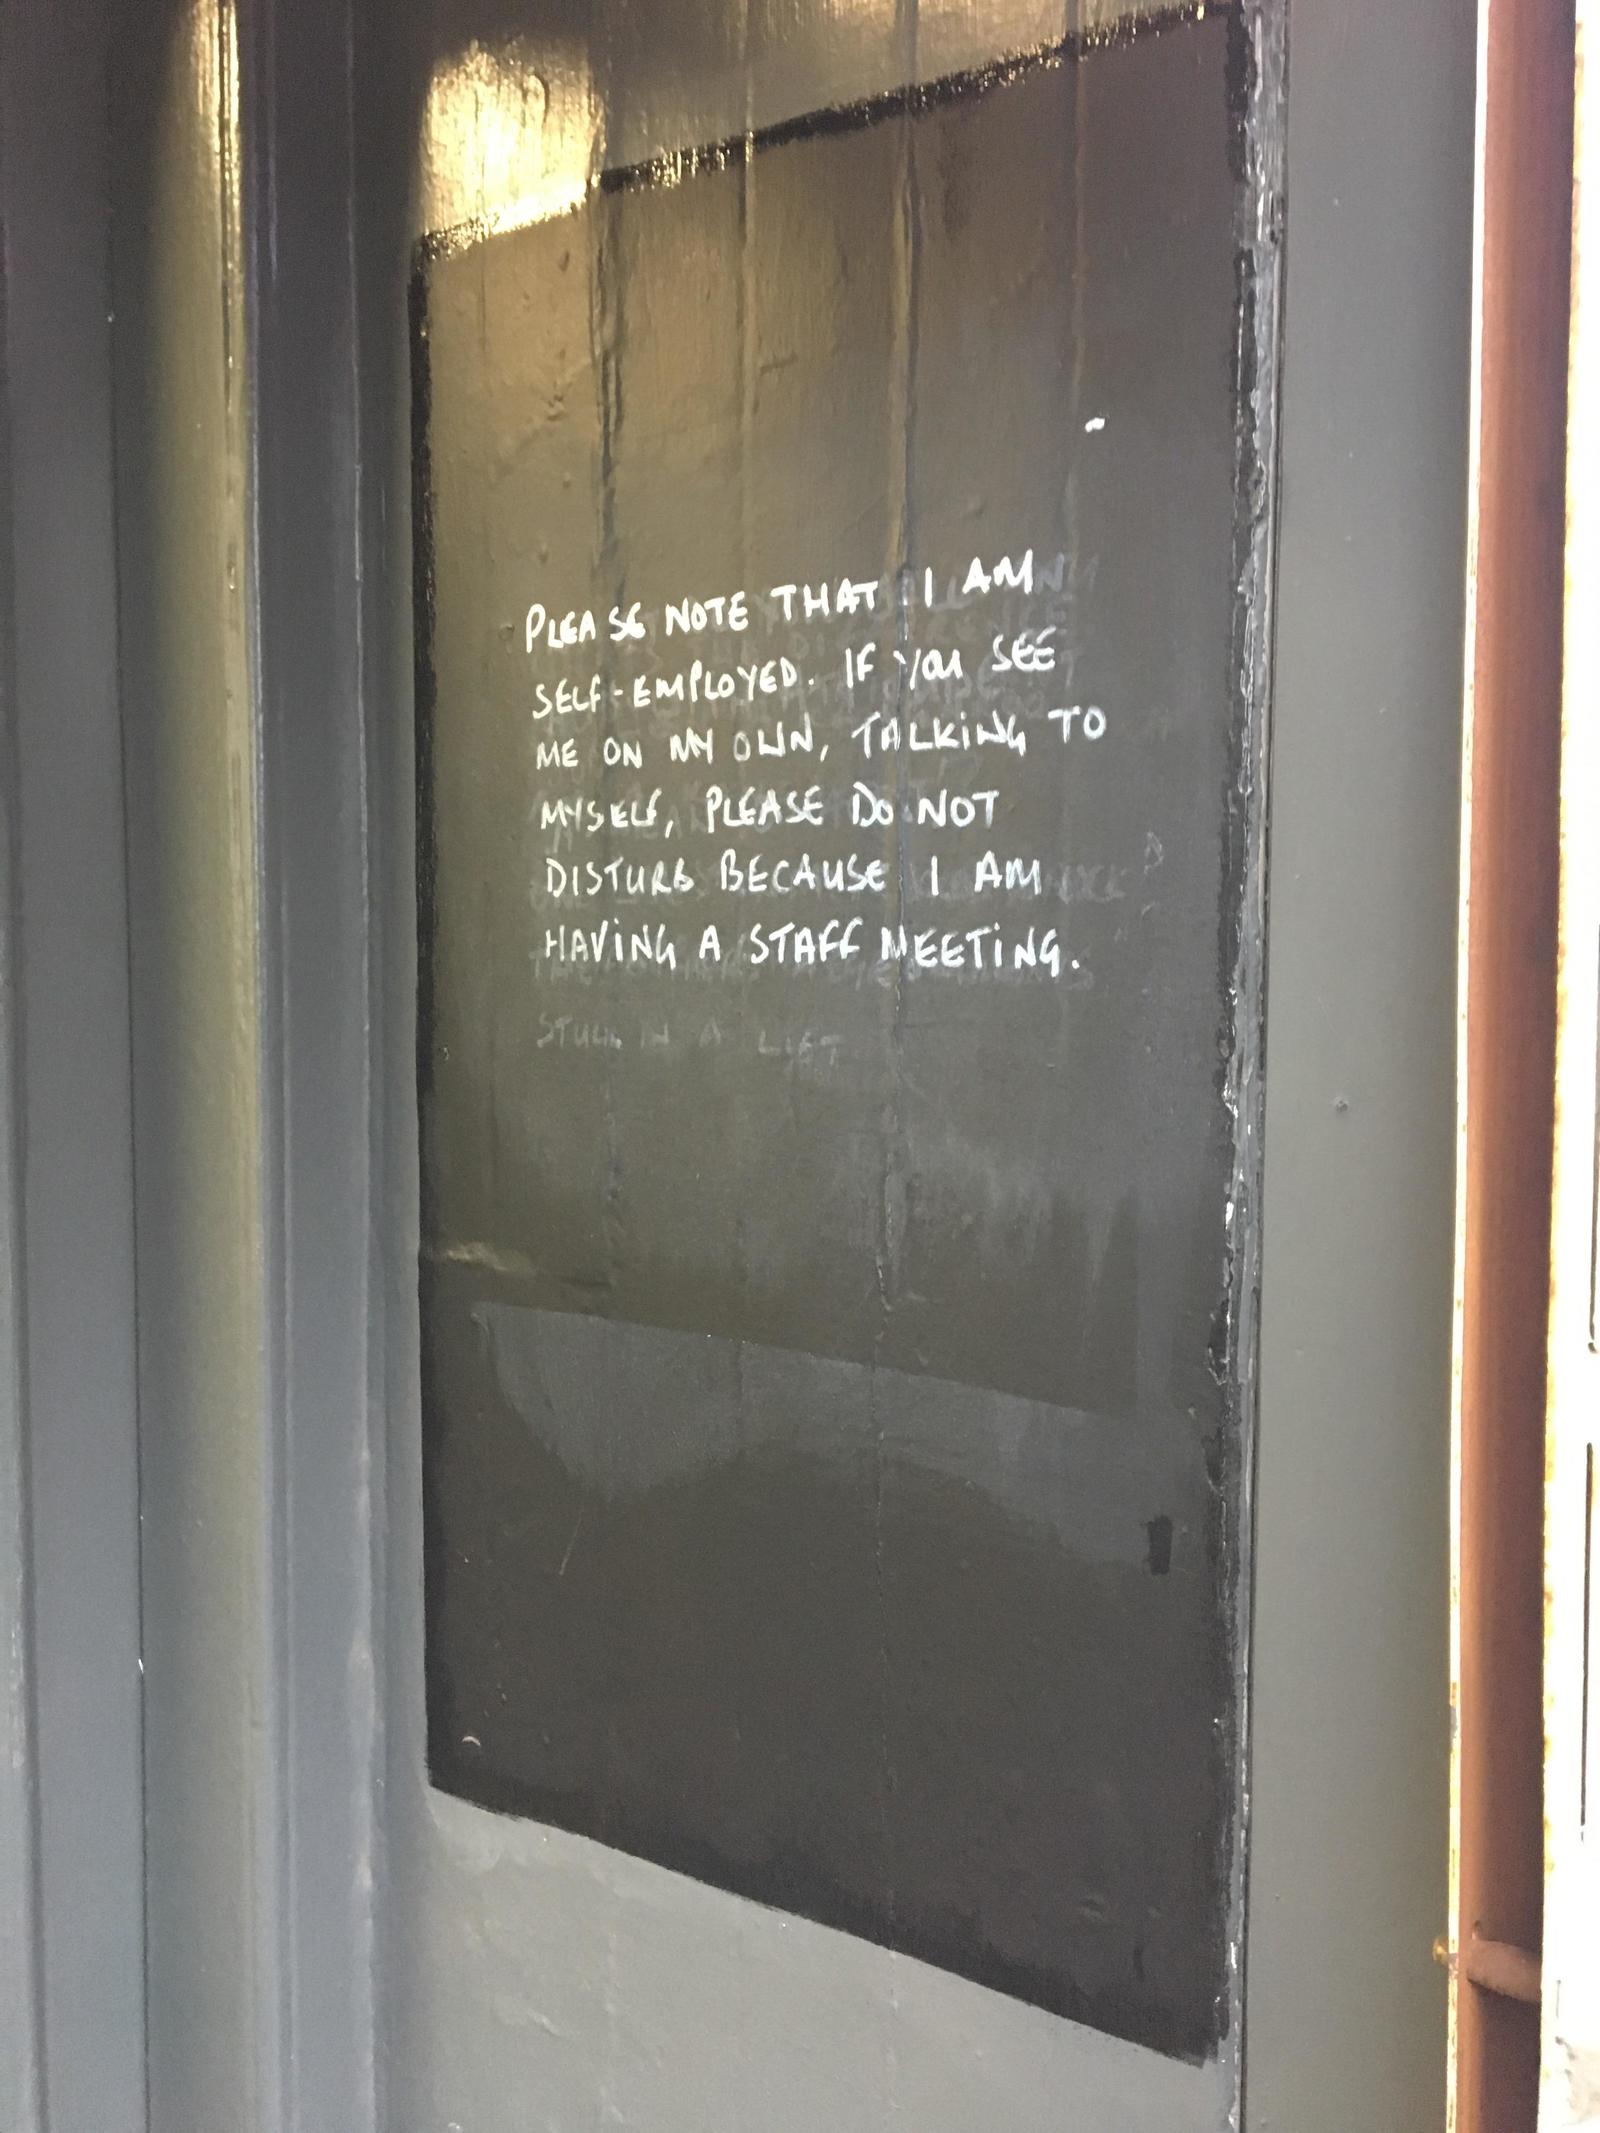 PLEASE NOTE THAT I AM
SELF-EMPLOYED. IF YOU SEE
ME ON MY OWN, TALKING TO
MYSELF, PLEASE DO NOT
DISTURB BECAUSE I AM
HAVING A STAFF MEETING.
STUCK IN A LIFT